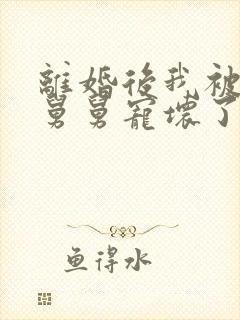 離婚後我被
舅舅寵壞了
鱼得水